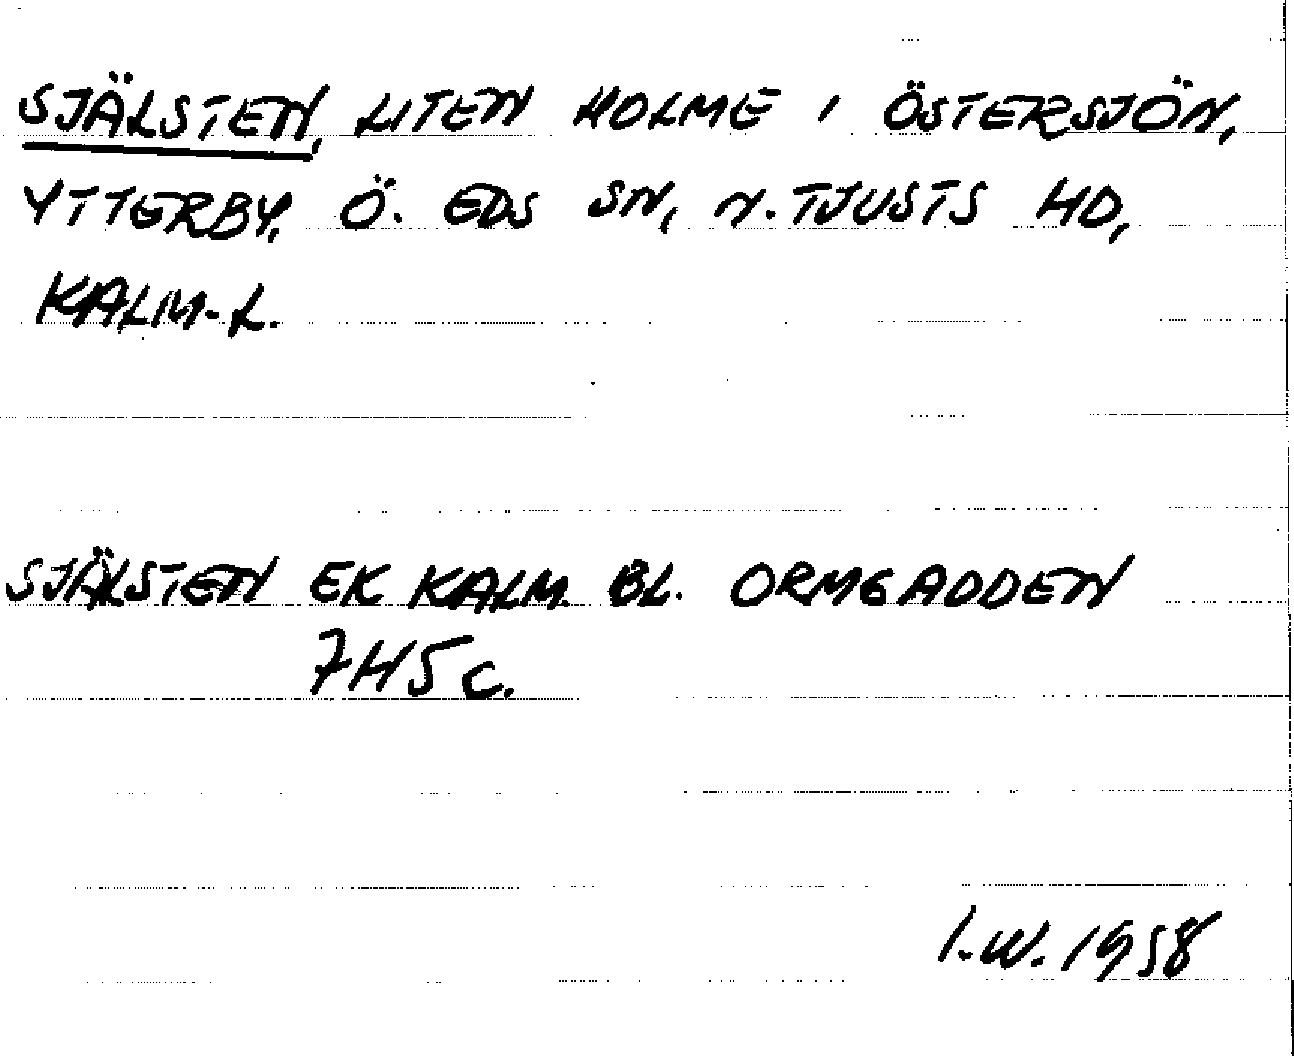 SJÄLSTEN, LITEN HOLME I ÖSTERSJÖN,
YTTERBY, Ö. EDS SN, N. TJUSTS HD,
KALM-L.
SJÄLSTEN EK KALM. BL. ORMGADDEN
7H5c.
I.W. 1958